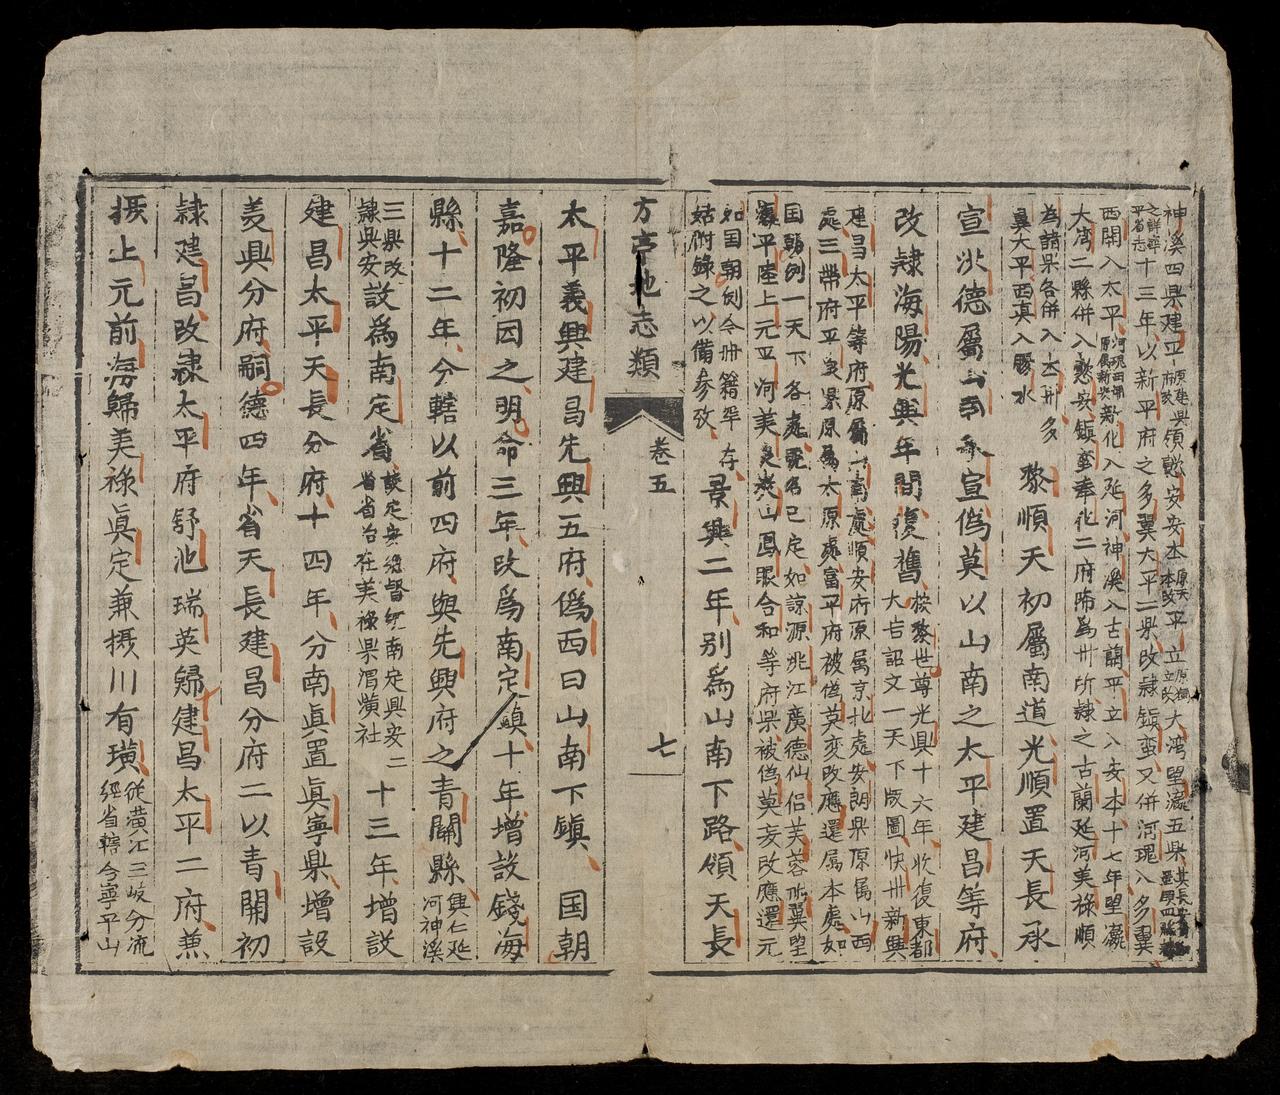 神溪四県建平領懿安安本平立大灣望瀛五県
十三年以新平府之多翼大平二県改隷鎮蛮又併河瑰入多翼
西関入太平新化入延河神溪入古蘭平立入安本十七年望瀛
大灣二縣併入懿安鎮蛮奉化二府降為卅所隷之古蘭延河美祿順
為諸果各併入本卅多
翼大平西真入勝水
黎順天初屬南道光順置天長承
宣洪德屬山南承宣偽莫以山南之太平建昌等府
改隷海陽光興年間復舊按黎世尊光興十六年收復東都
大告詔文一天下版圖快卅新興
建昌太平等府原屬山南處順安府原属京北處安朗県原属山西
處三帶府平泉県原属太原處富平府被偽莫変改應還属本處如
国朝例一天下各處号名已定如諒源洮江廣德仙侣芙蓉
平陸上元平河美良山鳳眼合和等府県被偽莫妄改應還元
如国朝例今卅籍罕存
姑附錄之以備參攷
景興二年别為山南下路領天長
方亭地志類
卷五
七
太平義興建昌先興五府偽西曰山南下鎮国朝
嘉隆初因之明命三年改為南定鎮十年增設錢海
縣十二年分轄以前四府與先興府之青關縣興仁延
河神溪
三県改
隷興安
設為南定省設定安總督統南定興安二
省省台在美祿県渭潢社
十三年增設
建昌太平天長分府十四年分南眞置眞寧県增設
羙興分府嗣德四年省天長建昌分府二以青關初
隷建昌改隷太平府舒池瑞英歸建昌太平二府兼
摄上元前海歸美祿眞定兼摄川有璜從黄江三岐分流
經省轄今寧平山